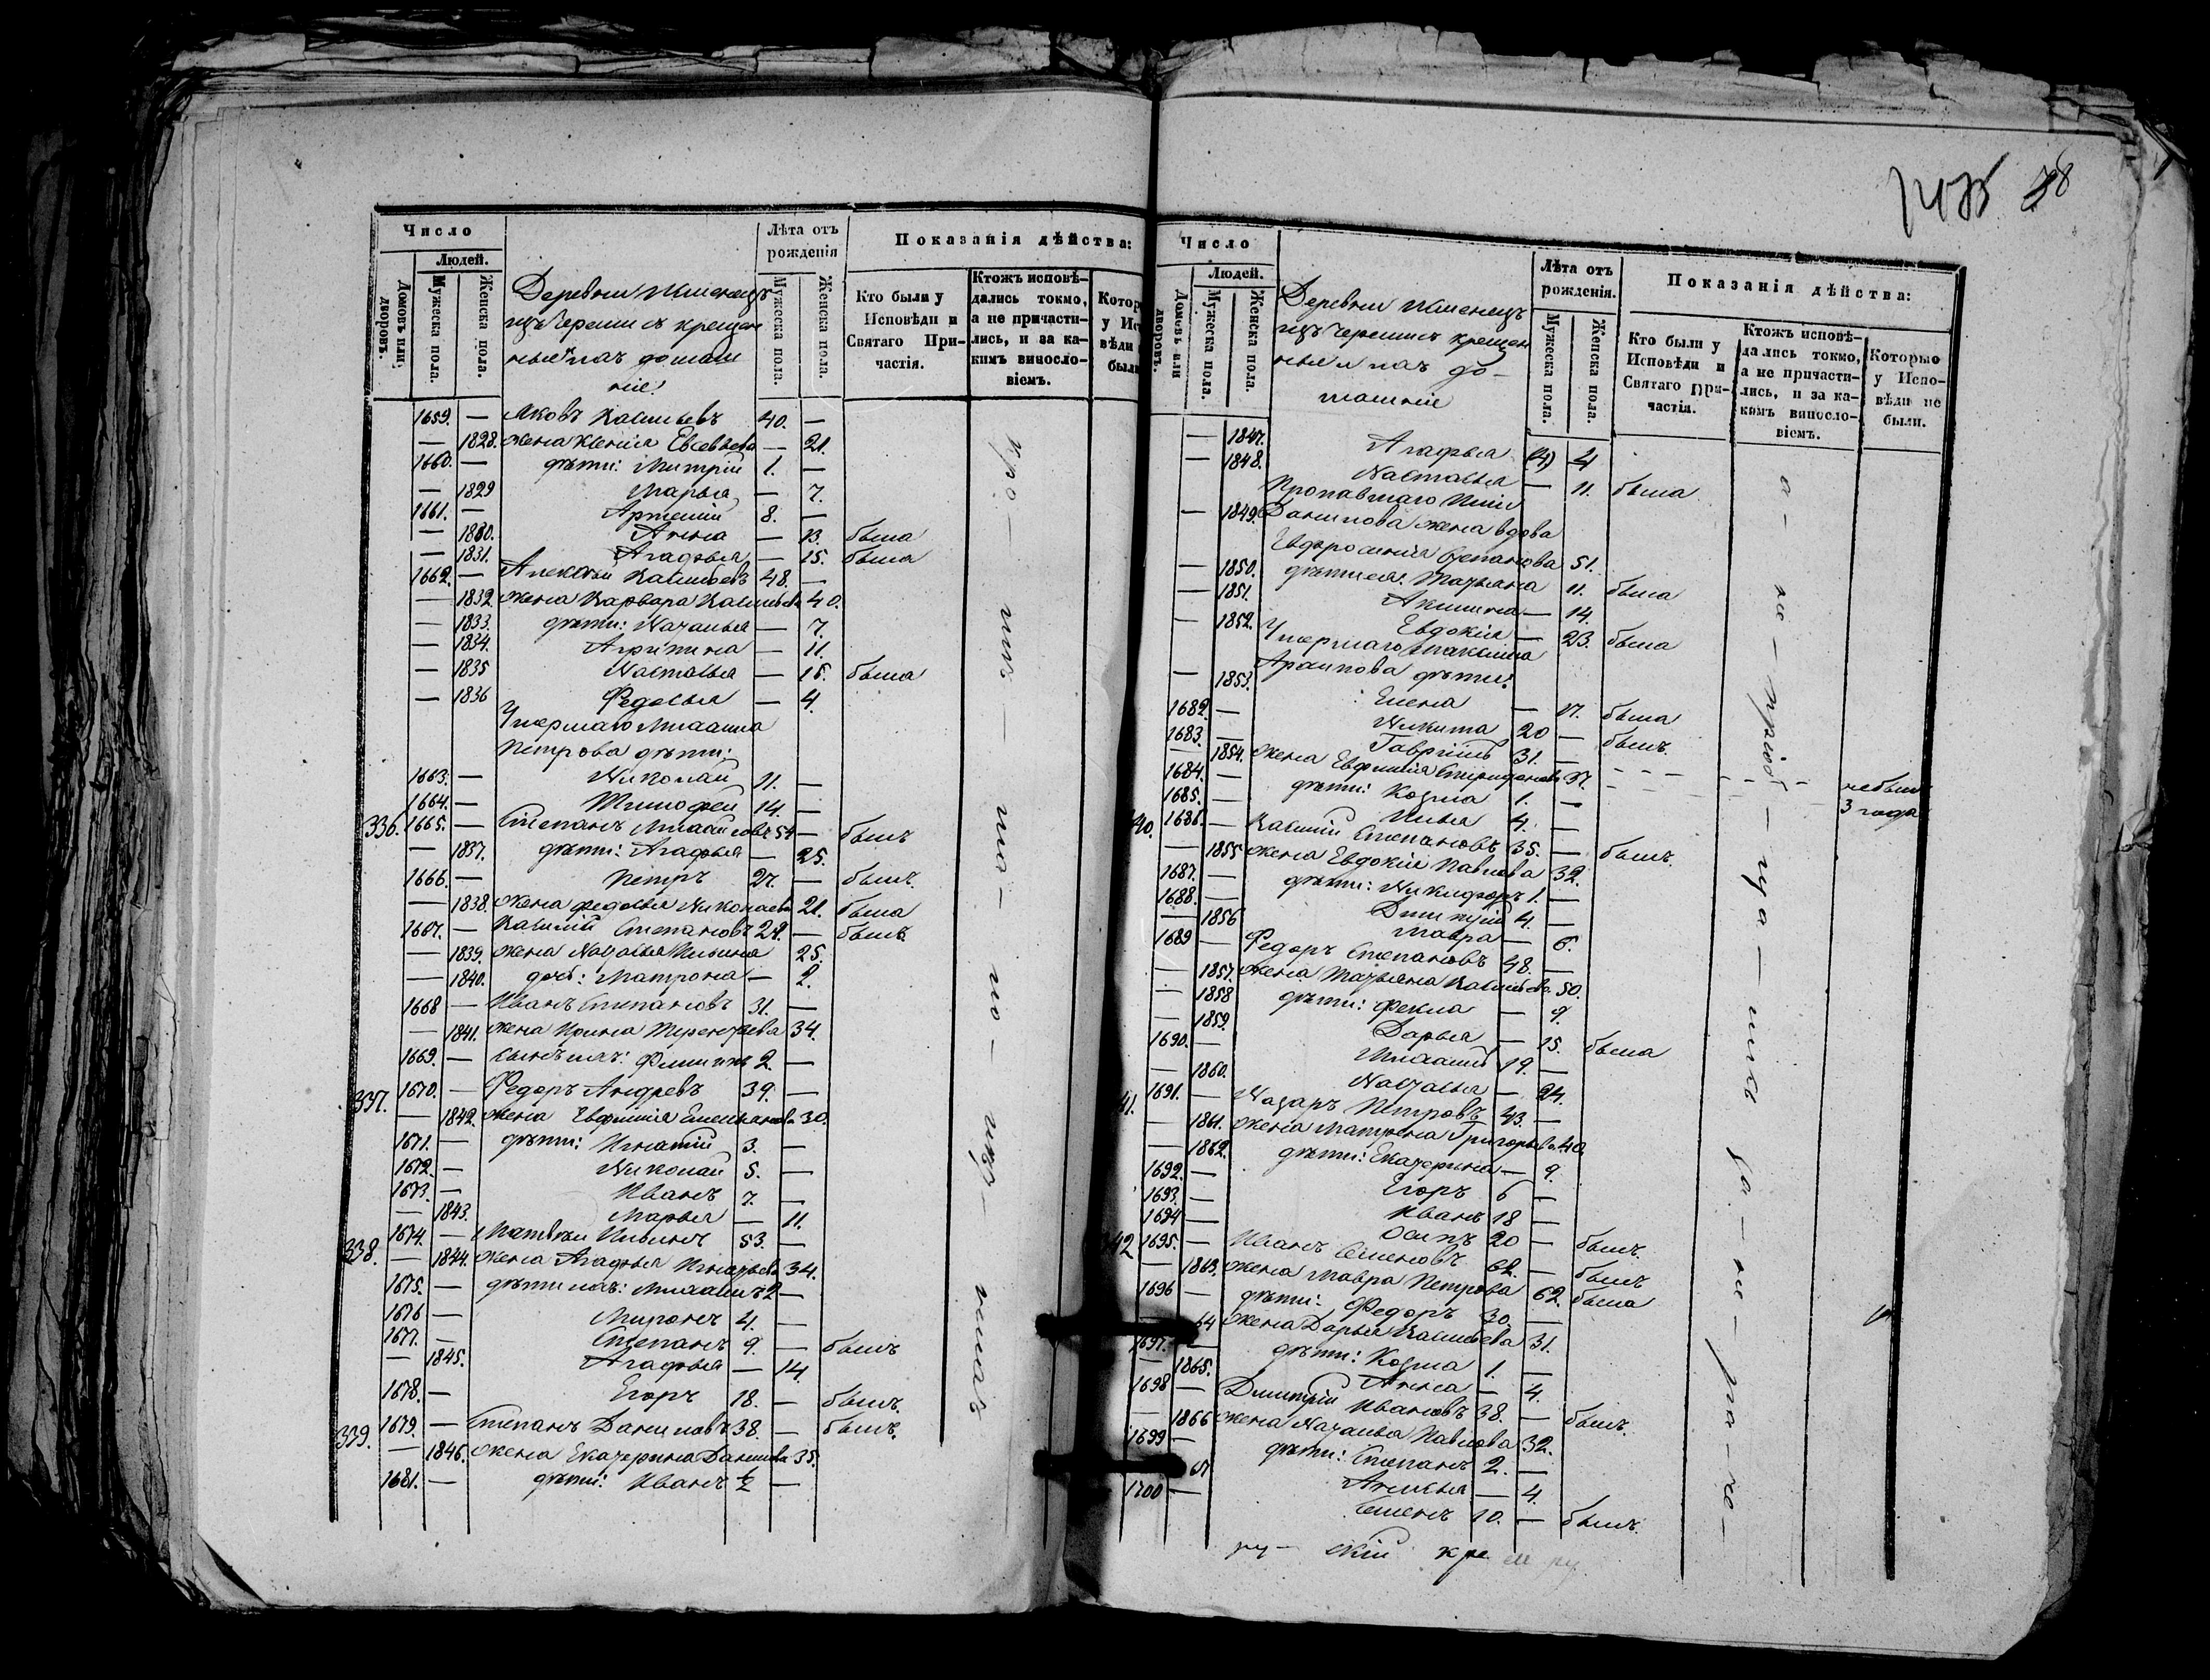 Число
Людей.
Домовъ или дворовъ.
Мужеска пола.
Женска пола.
Деревни
изъ Черемисъ крещен
ные и ихъ домаш
ніе:
Лѣта отъ рожденія
Мужеска пола.
Женска пола.
Показанія дѣйства:
Кто были у Исповѣди и Святаго При-
частія.
Ктожъ исповѣ-
дались токмо,
а не причасти-
лись, и за ка-
кимъ винословіемъ.
1659. — Яковъ Васильевъ 40. —
— 1828. жена Ксенія Евсевьева — 21.
1660. — дѣти: Митрій 1. —
— 1829 Марья — 7.
1661. — Артемій 8. —
— 1830. Анна — 13. была
— 1831. Агафья — 15. была
1662. — Алексѣй Васильевъ 48. —
— 1832. жена Варвара Васильева 40.
— 1833. дѣти: Наталья — 7.
— 1834. Агрипина — 11.
— 1835 Настасья — 15. была
— 1836 Федосья — 4.
Умершаго Михаила
Петрова дѣти:
1663. — Николай 11. —
1664. — Тимофей 14. —
336. 1665. — Степанъ Михайловъ 54 — былъ
— 1837. дѣти: Агафья — 25.
1666. — Петръ 27. — былъ.
— 1838. жена Федосья Николаева 21. была
1667. — Василій Степановъ 28. — былъ
— 1839. жена Настасья Ильина 25.
— 1840. дочь: Матрона — 2.
1668 — Иванъ Степановъ 31. —
— 1841. жена Ирина Терентьева 34.
1669. — сынъ ихъ: Филиппъ 2. —
337. 1670. — Федоръ Андреевъ 39. —
— 1842. жена Евфимія Емельянова 30.
1671. — дѣти: Игнатій 3. —
1672. — Николай 5. —
1673. — Иванъ 7. —
— 1843. Марья — 11.
338. 1674. — Матвѣй Ильинъ 53. —
— 1844. жена Агафья Игнатьева 34.
1675. — дѣти ихъ: Михаилъ 2 —
1676 — Миронъ 4. —
1677. — Степанъ 9. — былъ
— 1845. Агафья — 14.
1678. — Егоръ 18. — былъ.
339. 1679. — Степанъ Даниловъ 38. — былъ.
— 1846. жена Екатерина Данилова 35.
1681. — дѣти: Иванъ ½ —
78
Число
Людей.
Домовъ или дворовъ.
Мужеска пола.
Женска пола.
Деревни
изъ Черемисъ крещен
ные и ихъ до-
машніе
Лѣта отъ рожденія.
Мужеска пола.
Женска пола.
Показанія дѣйства:
Кто были у Исповѣди и Святаго При-
частія.
Ктожъ исповѣ-
дались токмо,
а не причасти-
лись, и за ка-
кимъ винословіемъ.
Которые у Испо-
вѣди не были.
— 1847. Агафья (4) 4
— 1848. Настасья — 11. была.
Пропавшаго Ильи
— 1849. Данилова жена вдова
Евфросинія Степанова 51.
— 1850. дѣти ея: Татьяна 11. была
— 1851. Акилина — 14.
— 1852. Евдокія — 23. была
Умершаго Максима
Архипова дѣти:
— 1853. Елена — 17. была
1682. — Никита 20 — былъ.
1683. — Гавріилъ 31. —
— 1854. жена Евфимія Спиридонова 37. не были
1684. — дѣти: Козма 1. — 3 года
1685. — Илья 4. —
40. 1686. — Василій Степановъ 35. — былъ.
— 1855 жена Евдокія Павлова 32.
1687. — дѣти: Никифоръ 1. —
1688. — Дмитрій 4. —
— 1856 Мавра — 6.
1689 — Федоръ Степановъ 48. —
— 1857. жена Татьяна Васильева. 50.
— 1858 дѣти: Фекла — 9.
— 1859. Дарья — 15. была
1690. — Михаилъ 19. —
— 1860. Настасья — 24.
41. 1691. — Назаръ Петровъ 43. —
— 1861. жена Матрена Григорьева 40.
— 1862. дѣти: Екатерина — 9.
1692. — Егоръ 6 —
1693. — Иванъ 18 —
1694 — Осипъ 20 — былъ.
42 1695. — Иванъ Семеновъ 62. — былъ
— 1863. жена Мавра Петрова 62. была
1696 — дѣти: Федоръ 30. —
64 жена Дарья Васильева 31.
1697. — дѣти: Козма 1. —
— 1865. Анна — 4.
1698 — Дмитрій Ивановъ 38. — былъ.
— 1866 жена Наталья Павлова 32.
1699 — дѣти: Степанъ 2. —
67 Анисья — 4.
1700 — Семенъ 10. — былъ.